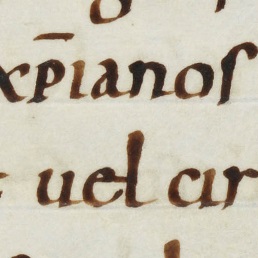 xp̄ianos
uel cir